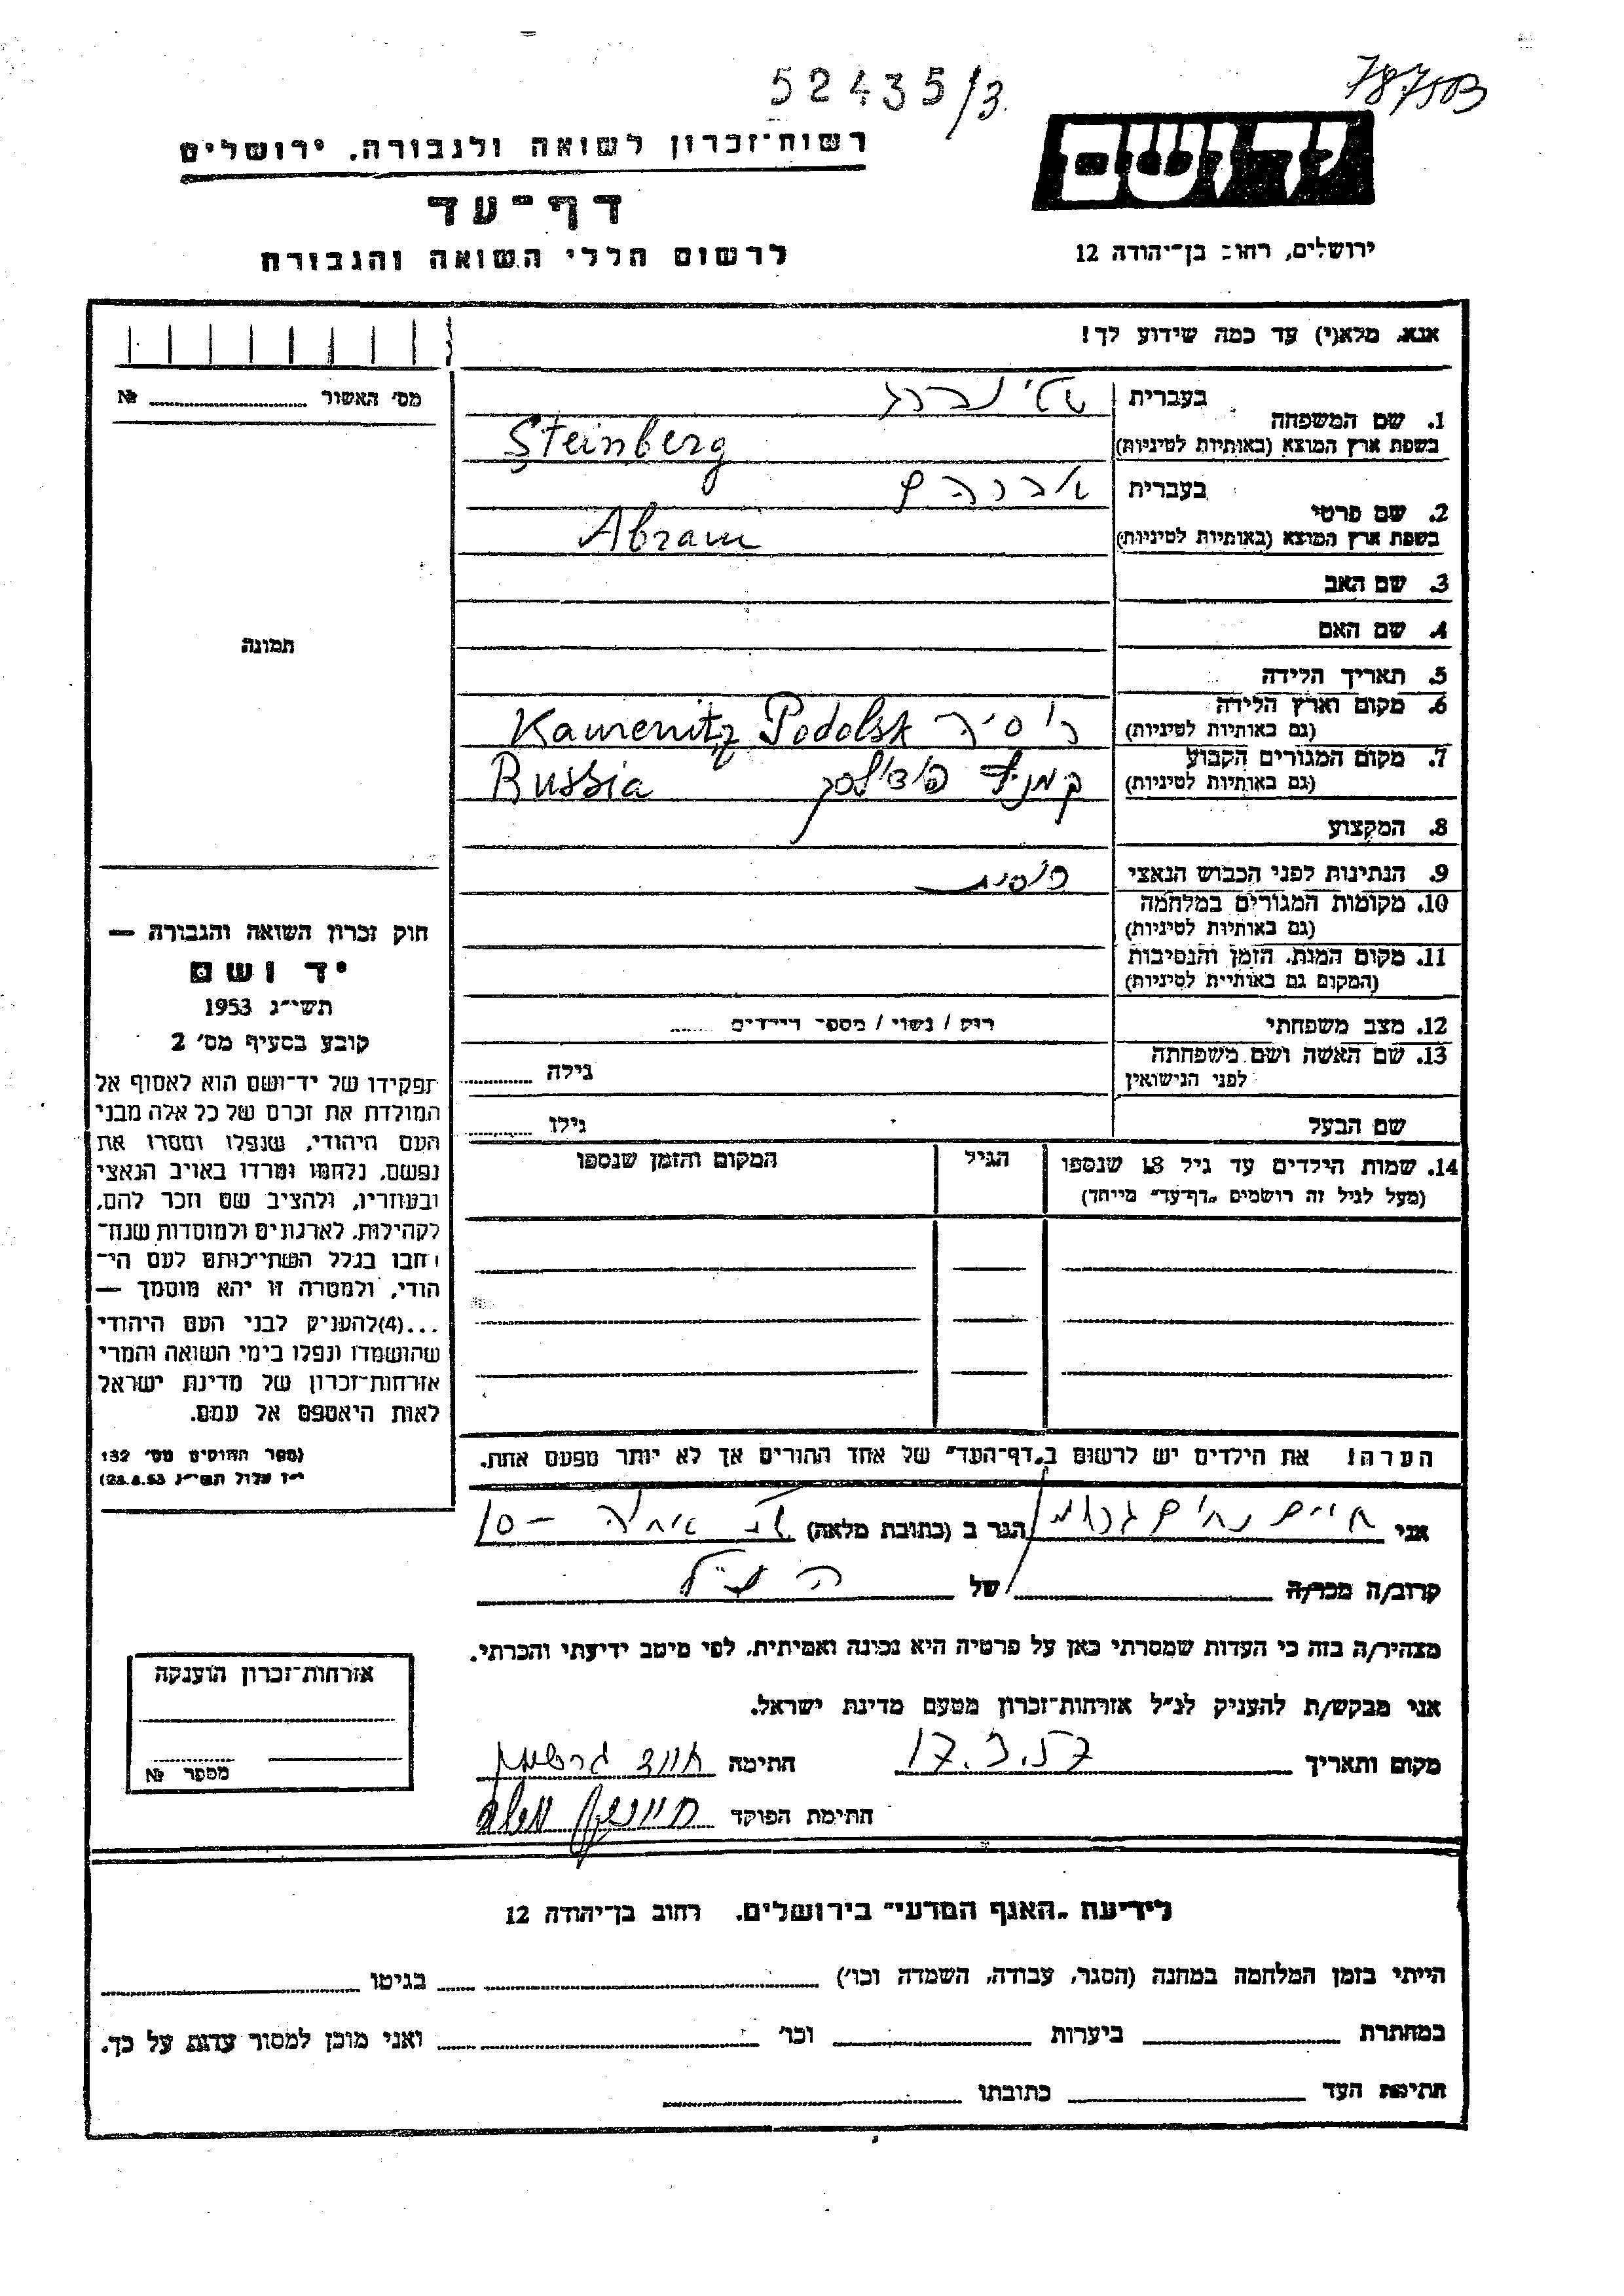 52435/3
7875B
רשות־זכרון לשואה ולגבורה, ירושלים
יד ושם
דף־עד
ירושלים, רחוב בן־יהודה 12
לרשום חללי השואה והגבורה
אנא, מלא(י) עד כמה שידוע לך!
מס׳ האשור № 
1. שם המשפחה
בעברית שטינברג
בשפת ארץ המוצא (באותיות לטיניות) Steinberg
2. שם פרטי
בעברית אברהם
בשפת ארץ המוצא (באותיות לטיניות) Abram
3. שם האב
4. שם האם
תמונה
5. תאריך הלידה
6. מקום וארץ הלידה
(גם באותיות לטיניות) רוסיה Kamenitz Podolsk
7. מקום המגורים הקבוע
(גם באותיות לטיניות) קמניץ פודולסק Russia
8. המקצוע
9. הנתינות לפני הכבוש הנאצי
10. מקומות המגורים במלחמה
(גם באותיות לטיניות)
11. מקום המות, הזמן והנסיבות
(המקום גם באותיות לטיניות)
12. מצב משפחתי רוק / נשוי / מספר הילדים
13. שם האשה ושם משפחתה
לפני הנישואין גילה
שם הבעל גילו
14. שמות הילדים עד גיל 18 שנספו הגיל המקום והזמן שנספו
(מעל לגיל זה רושמים „דף־עד״ מיוחד)
חוק זכרון השואה והגבורה —
יד ושם
תשי״ג 1953
קובע בסעיף מס׳ 2
תפקידו של יד־ושם הוא לאסוף אל
המולדת את זכרם של כל אלה מבני
העם היהודי, שנפלו ומסרו את
נפשם, נלחמו ומרדו באויב הנאצי
ובעוזריו, ולהציב שם וזכר להם,
לקהילות, לארגונים ולמוסדות שנח־
רבו בגלל השתייכותם לעם הי־
הודי, ולמטרה זו יהא מוסמך —
...(4)להעניק לבני העם היהודי
שהושמדו ונפלו בימי השואה והמרי
אזרחות־זכרון של מדינת ישראל
לאות היאספם אל עמם.
(ספר החוקים מס׳ 132
י״ז אלול תשי״ג 28.8.53)
הערה! את הילדים יש לרשום ב„דף־העד״ של אחד ההורים אך לא יותר מפעם אחת.
אני חיים הגר ב (כתובת מלאה)
קרוב/ה מכר/ה של הנ״ל
מצהיר/ה בזה כי העדות שמסרתי כאן על פרטיה היא נכונה ואמיתית, לפי מיטב ידיעתי והכרתי.
אני מבקש/ת להעניק לנ״ל אזרחות־זכרון מטעם מדינת ישראל.
מקום ותאריך 17.3.57 חתימה
חתימת הפוקד
אזרחות־זכרון הוענקה
מספר №
לידיעת „האגף המדעי״ בירושלים, רחוב בן־יהודה 12
הייתי בזמן המלחמה במחנה (הסגר, עבודה, השמדה וכו׳) בגיטו
במחתרת ביערות וכו׳ ואני מוכן למסור עדות על כך.
חתימת העד כתובתו